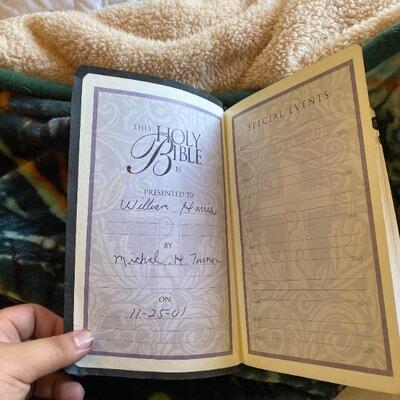 THIS
HOLY
BIBLE
IS
PRESENTED TO
William Harris
BY
Michal H Turner
ON
11-25-01
SPECIAL EVENTS